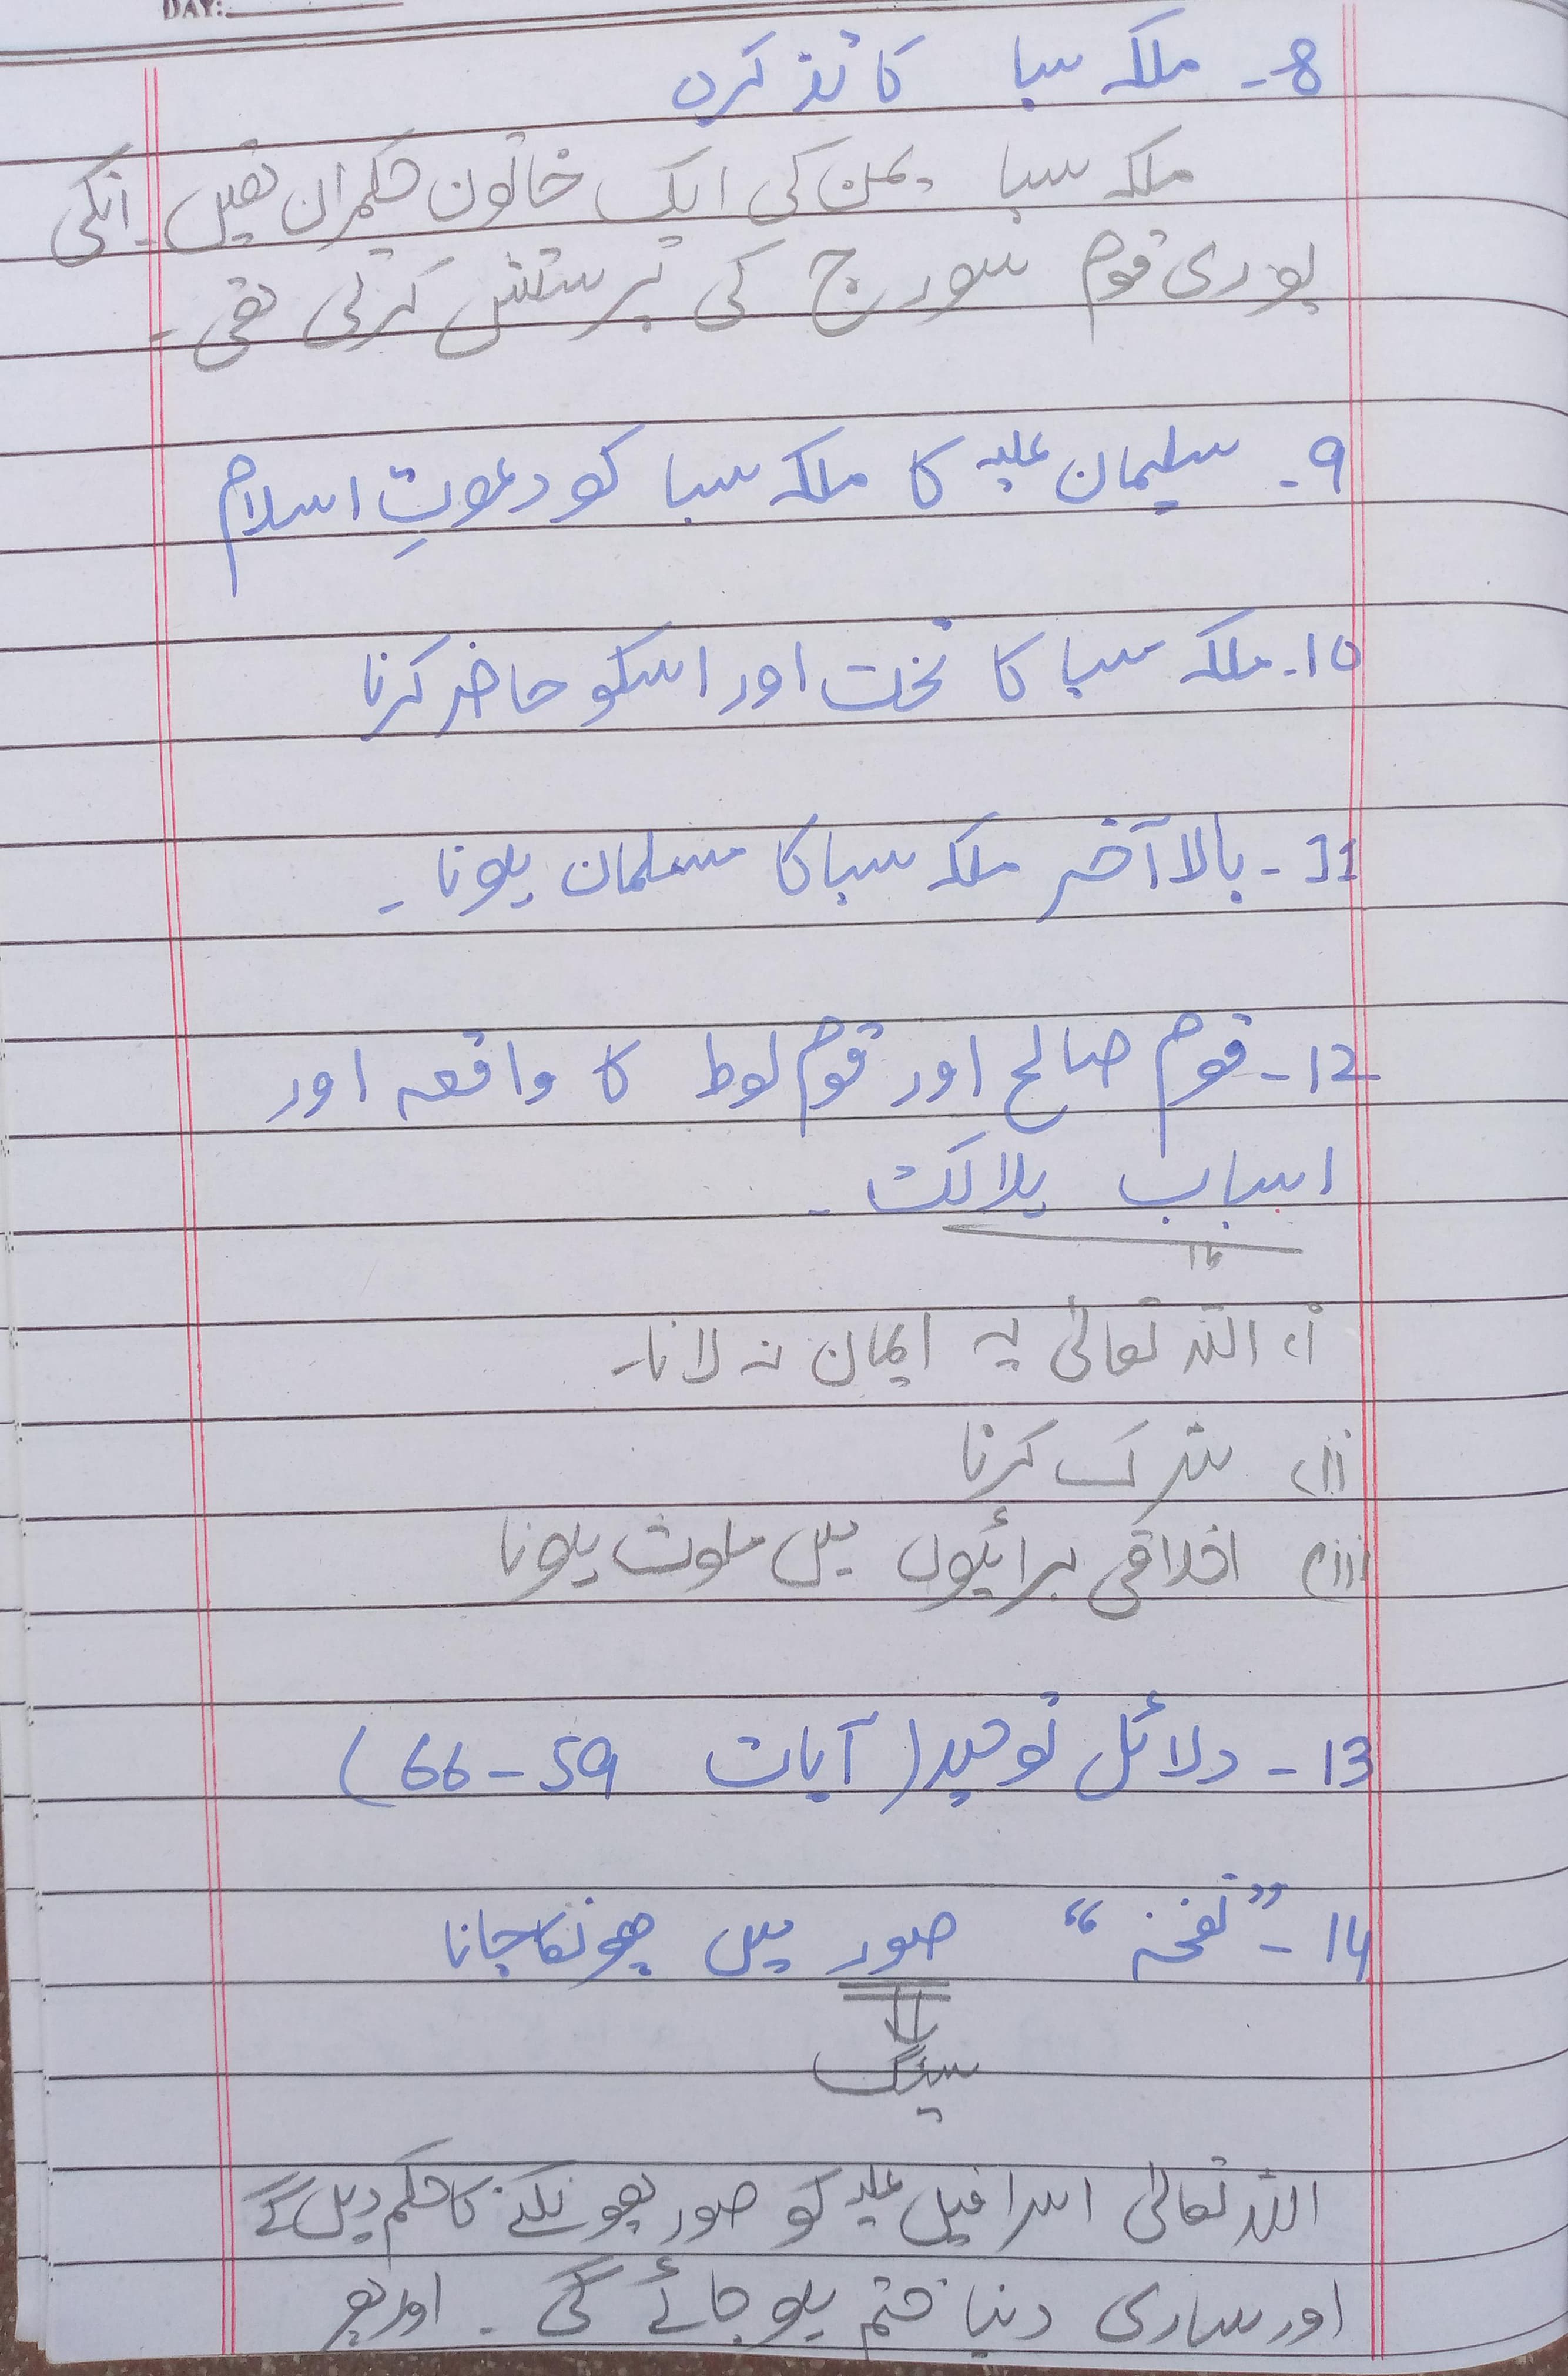 DAY:
8- ملکہ سبا کا تذکرہ
ملکہ سبا یمن کی ایک خاتون حکمران تھیں۔ انکی
پوری قوم سورج کی پرستش کرتی تھی۔
9- سلیمان علیہ کا ملکہ سبا کو دعوتِ اسلام
10- ملکہ سبا کا تخت اور اسکو حاضر کرنا
11- بالاآخر ملکہ سبا کا مسلمان ہونا۔
12- قوم صالح اور قوم لوط کا واقعہ اور
اسباب ہلاکت۔
i) اللہ تعالیٰ پہ ایمان نہ لانا۔
ii) شرک کرنا
iii) اخلاقی برائیوں میں ملوث ہونا
13- دلائل توحید (آیات 59-66)
14- ”نفخہ“ صور میں پھونکا جانا
سینگ
اللہ تعالیٰ اسرافیل علیہ کو صور پھونکنے کا حکم دیں گے
اور ساری دنیا ختم ہو جائے گی۔ اور پھر